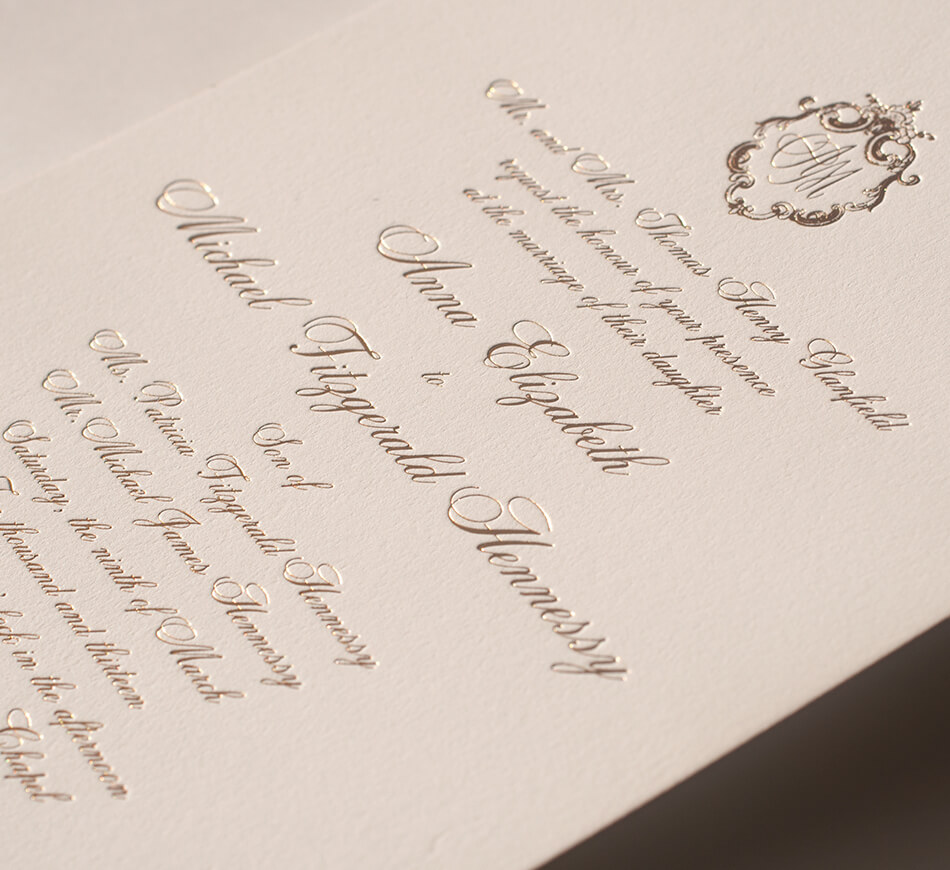 AM
Mr. and Mrs. Thomas Henry Glanfield
request the honour of your presence
at the marriage of their daughter
Anna Elizabeth
to
Michael Fitzgerald Hennessy
Son of
Ms. Patricia Fitzgerald Hennessy
Mr. Michael James Hennessy
Saturday, the ninth of March
thousand and thirteen
in the afternoon
Chapel